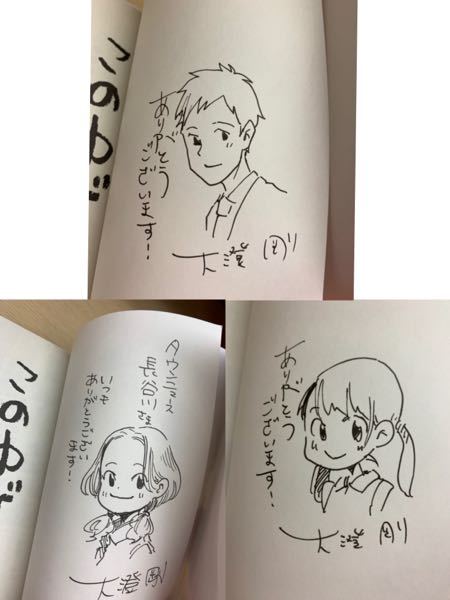 このゆび
ありがとう
ございます!
大澄 剛
このゆび
タウンニュース
長谷川さま
いつも
ありがとうござい
ます!
大澄 剛
ありがとう
ございます!
大澄 剛